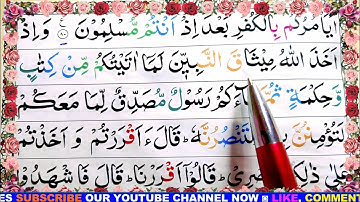 اَيَاْمُرُكُمْ بِالْكُفْرِ بَعْدَ اِذْ اَنْتُمْ مُّسْلِمُوْنَ ۝ وَاِذْ
اَخَذَ اللّٰهُ مِيْثَاقَ النَّبِيّٖنَ لَمَاۤ اٰتَيْتُكُمْ مِّنْ كِتٰبٍ
وَّحِكْمَةٍ ثُمَّ جَآءَكُمْ رَسُوْلٌ مُّصَدِّقٌ لِّمَا مَعَكُمْ
لَتُؤْمِنُنَّ بِهٖ وَلَتَنْصُرُنَّهٗ ؕ قَالَ ءَاَقْرَرْتُمْ وَاَخَذْتُمْ
عَلٰى ذٰلِكُمْ اِصْرِىْ ؕ قَالُوْۤا اَقْرَرْنَا ؕ قَالَ فَاشْهَدُوْا
ES SUBSCRIBE OUR YOUTUBE CHANNEL NOW LIKE, COMMENT